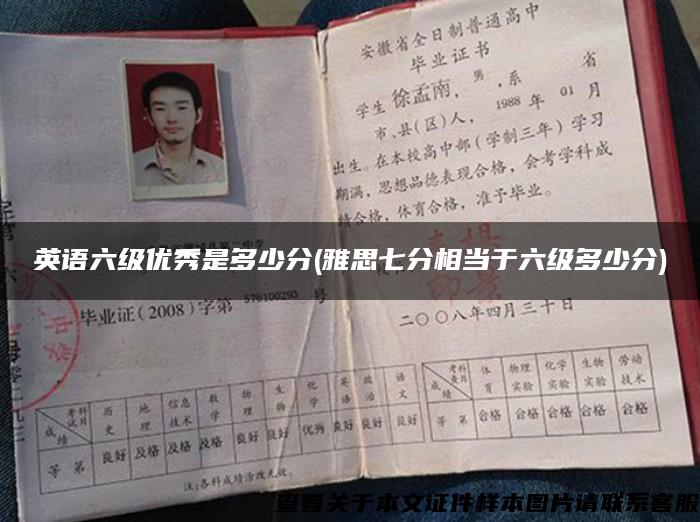 安徽省全日制普通高中
毕业证书
学生徐孟南，男，系 省
市、县(区)人，1988年01月
出生。在本校高中部（学制三年）学习
期满，思想品德表现合格，会考学科成
绩合格，体育合格，准予毕业。
英语六级优秀是多少分(雅思七分相当于六级多少分)
毕业证(2008)字第576100293号
二〇〇八年四月三十日
考试科目 历史 地理 信息技术 数学 物理 生物 化学 英语 政治 语文
成绩
等第 良好 及格 及格 及格 良好 良好 优秀 良好 良好 良好
注:各科成绩涂改无效。
考查科目 体育 物理实验 化学实验 生物实验 劳动技术
成绩
等第 合格 合格 合格 合格 合格
查看关于本文证件样本图片请联系客服